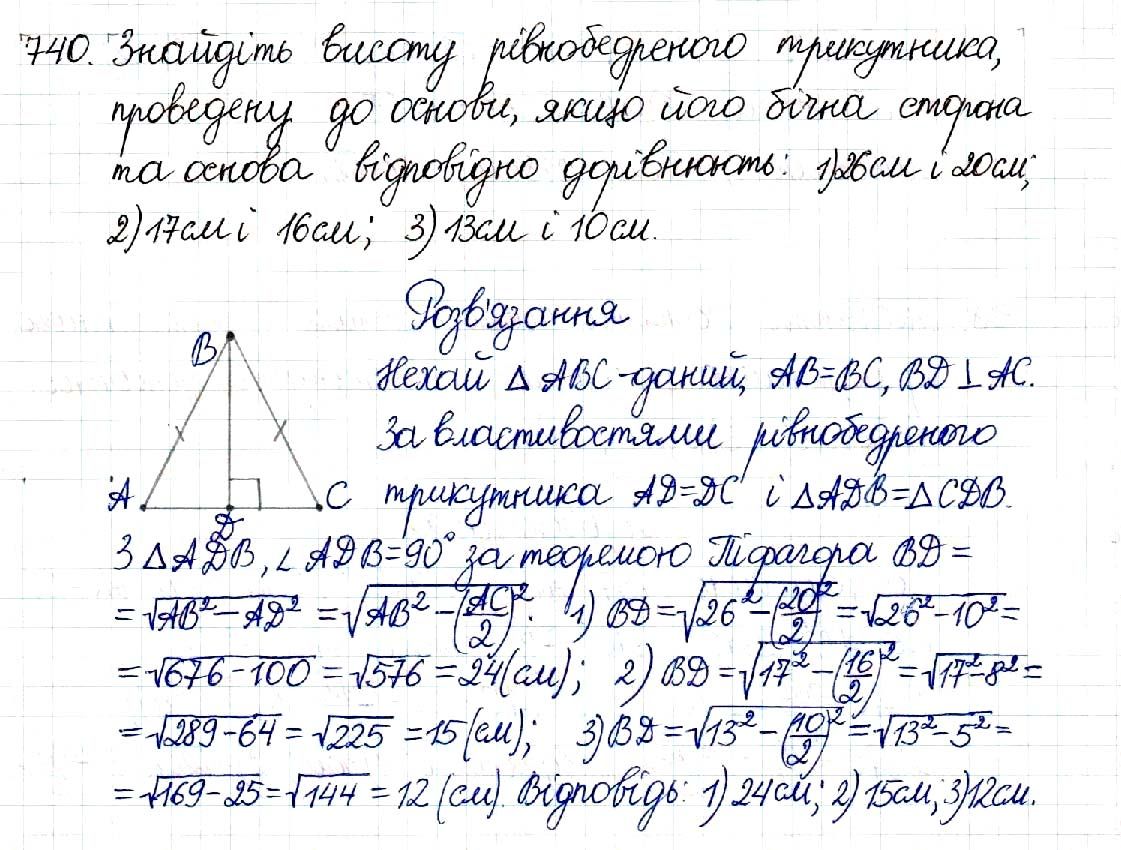 740. Знайдіть висоту рівнобедреного трикутника,
проведену до основи, якщо його бічна сторона
та основа відповідно дорівнюють: 1) 26 см і 20 см;
2) 17 см і 16 см; 3) 13 см і 10 см.
Розв'язання
B
Нехай △ ABC - даний, AB = BC, BD ⊥ AC.
За властивостями рівнобедреного
A D C
трикутника AD = DC і △ADB = △CDB.
З △ADB, ∠ADB = 90° за теоремою Піфагора BD =
= √(AB² − AD²) = √(AB² − (AC/2)²). 1) BD = √(26² − (20/2)²) = √(26² − 10²) =
= √(676 − 100) = √576 = 24 (см); 2) BD = √(17² − (16/2)²) = √(17² − 8²) =
= √(289 − 64) = √225 = 15 (см); 3) BD = √(13² − (10/2)²) = √(13² − 5²) =
= √(169 − 25) = √144 = 12 (см). Відповідь: 1) 24 см; 2) 15 см; 3) 12 см.